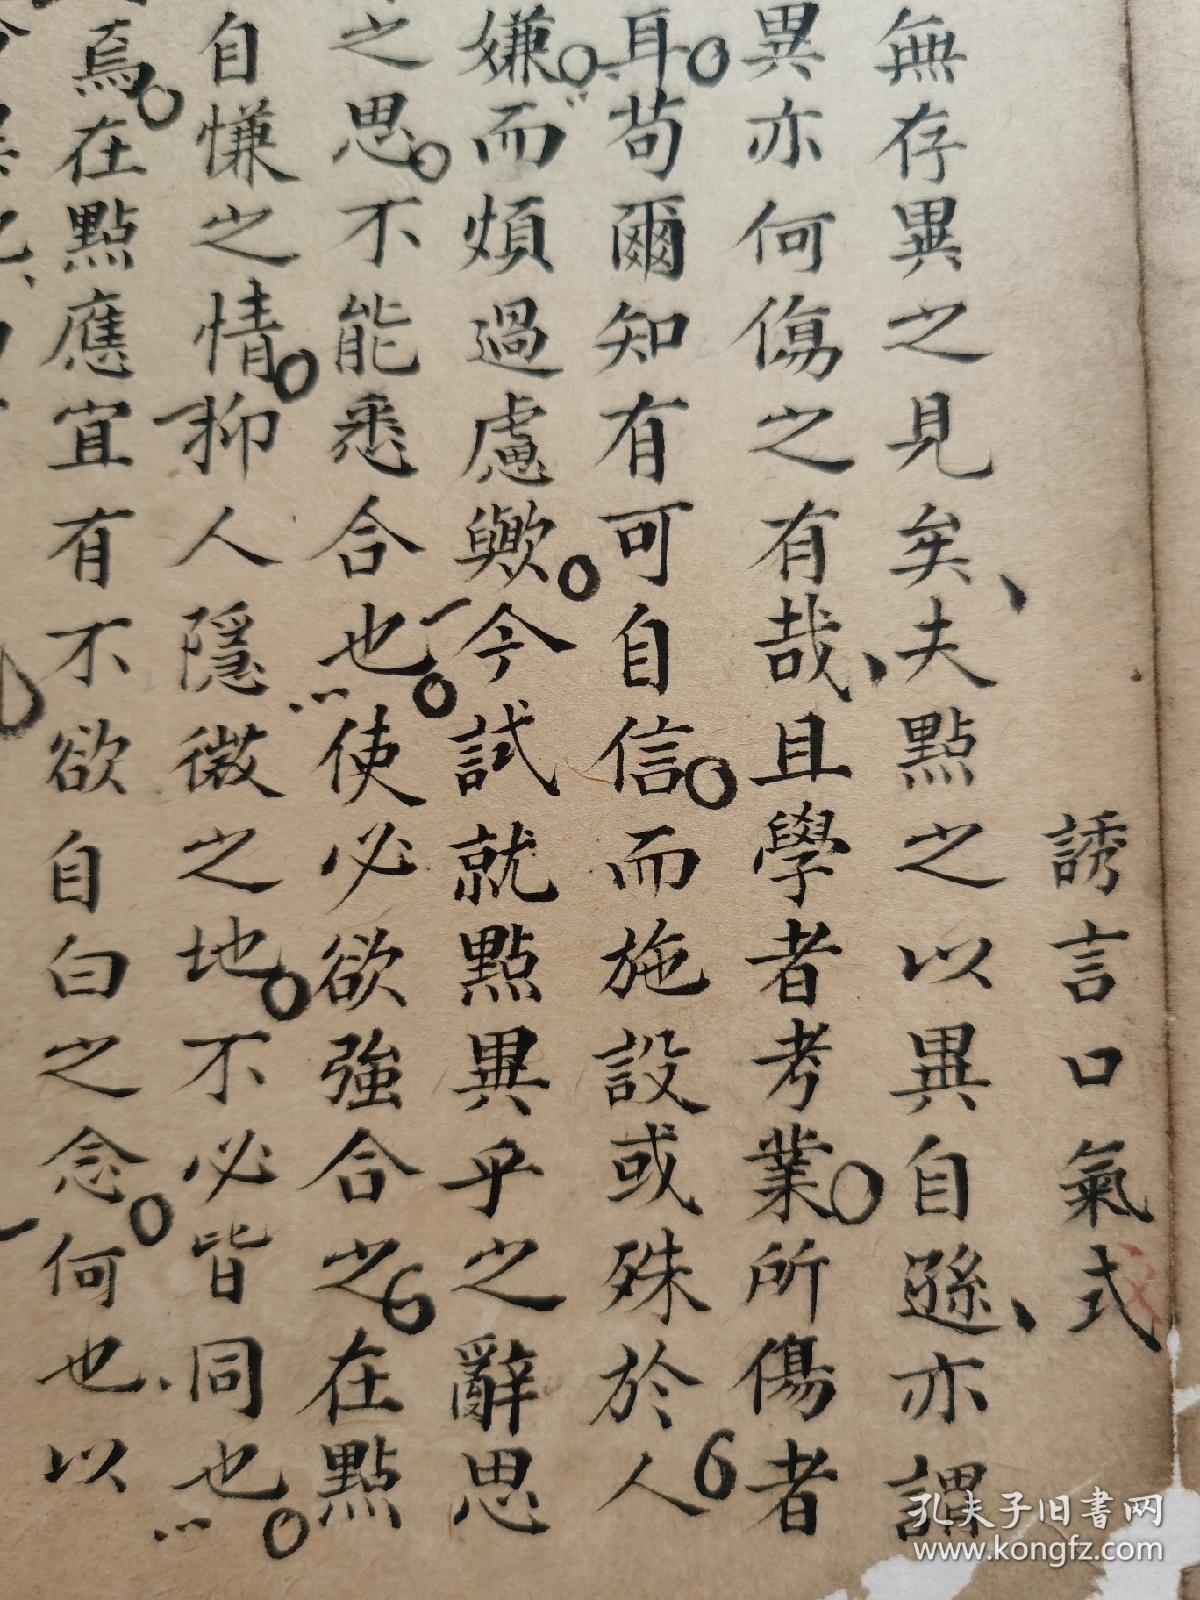 誘言口氣式
無存異之見矣、夫點之以異自遜、亦謂
異亦何傷之有哉、且學者考業。所傷者
耳。苟爾知有可自信。而施設或殊於人。
嫌。而煩過慮歟。今試就點異乎之辭思
之思。不能悉合也。使必欲強合之。在點
自慊之情。抑人隱微之地。不必皆同也。
焉。在點應宜有不欲自白之念。何也、以
孔夫子旧书网
www.kongfz.com